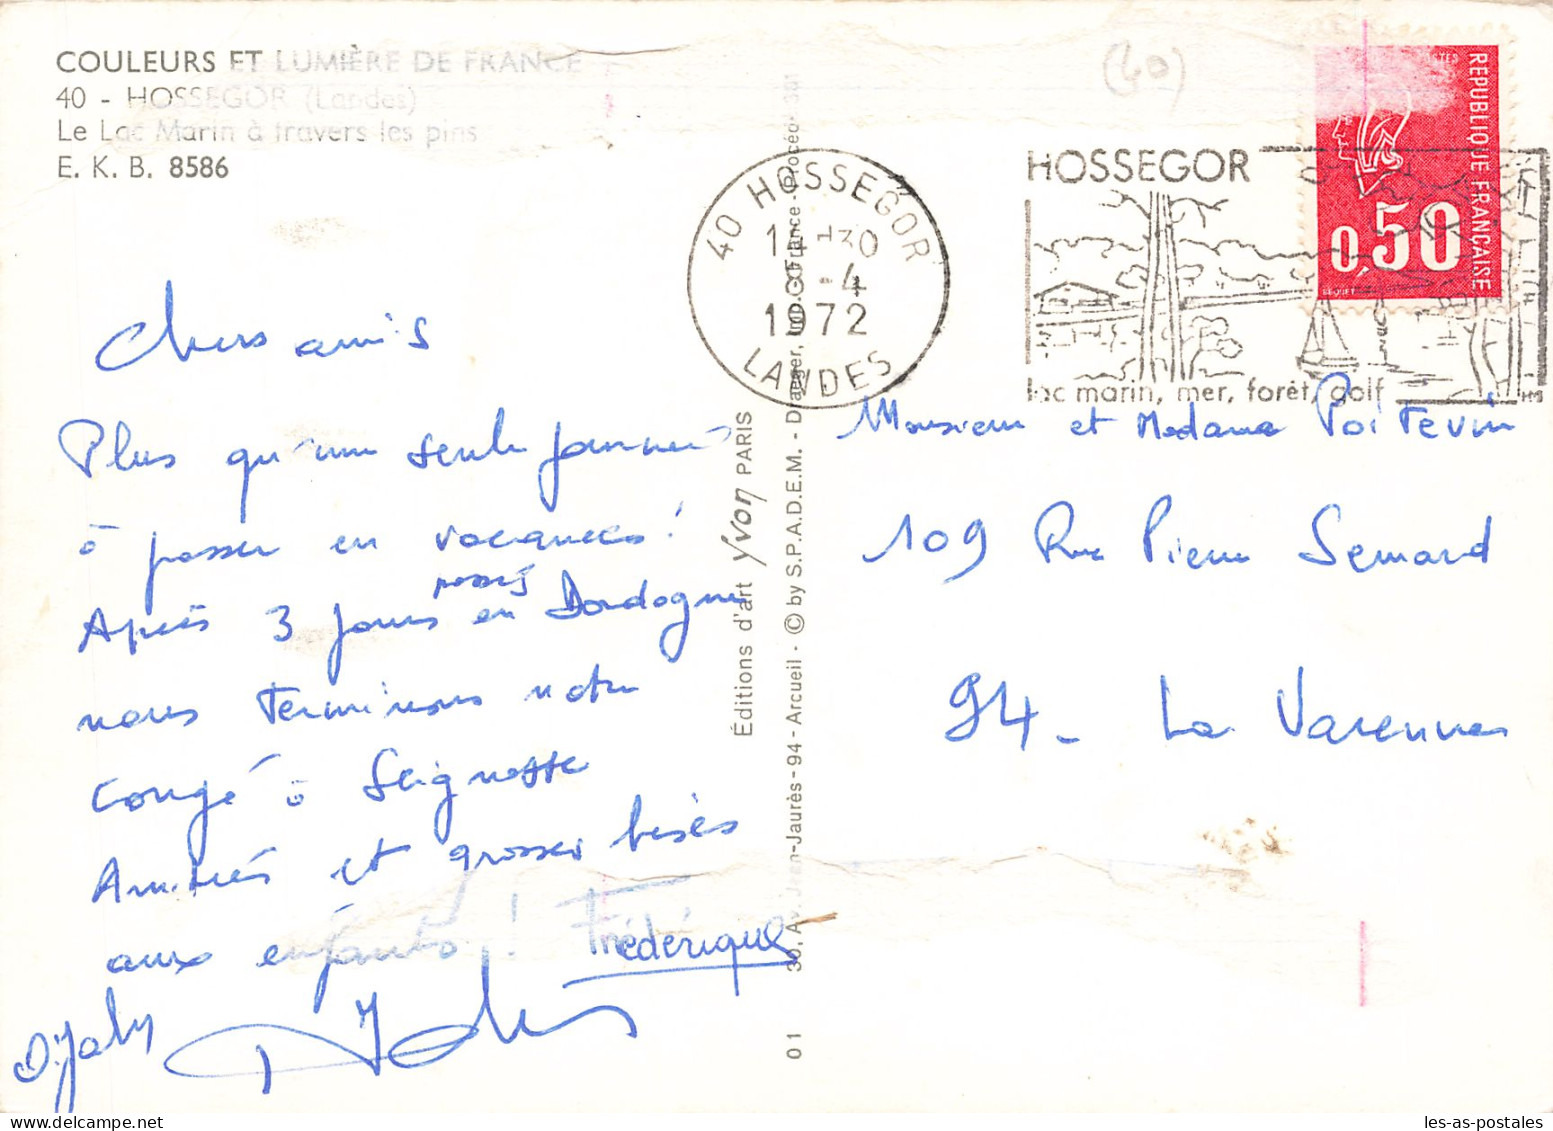 COULEURS ET LUMIÈRE DE FRANCE
40 - HOSSEGOR (Landes)
Le Lac Marin à travers les pins
E. K. B. 8586
(40)
REPUBLIQUE FRANCAISE
0,50
BEQUET
40 HOSSEGOR
14 H30
-4
1972
LANDES
HOSSEGOR
lac marin, mer, forêt, golf
Chers amis
Plus qu'une seule journée
à passer en vacances!
Après 3 jours passés en Dordogne
nous terminons notre
congé à Seignosse
Amitiés et grosses bises
aux enfants! Frédérique
Éditions d'art Yvon PARIS
30, Av. Jean-Jaurès - 94 - Arcueil - © by S.P.A.D.E.M. - Draeger, Imp. - France - Procédé 301
01
Monsieur et Madame Poitevin
109 Rue Pierre Semard
94 - La Varenne
les-as-postales